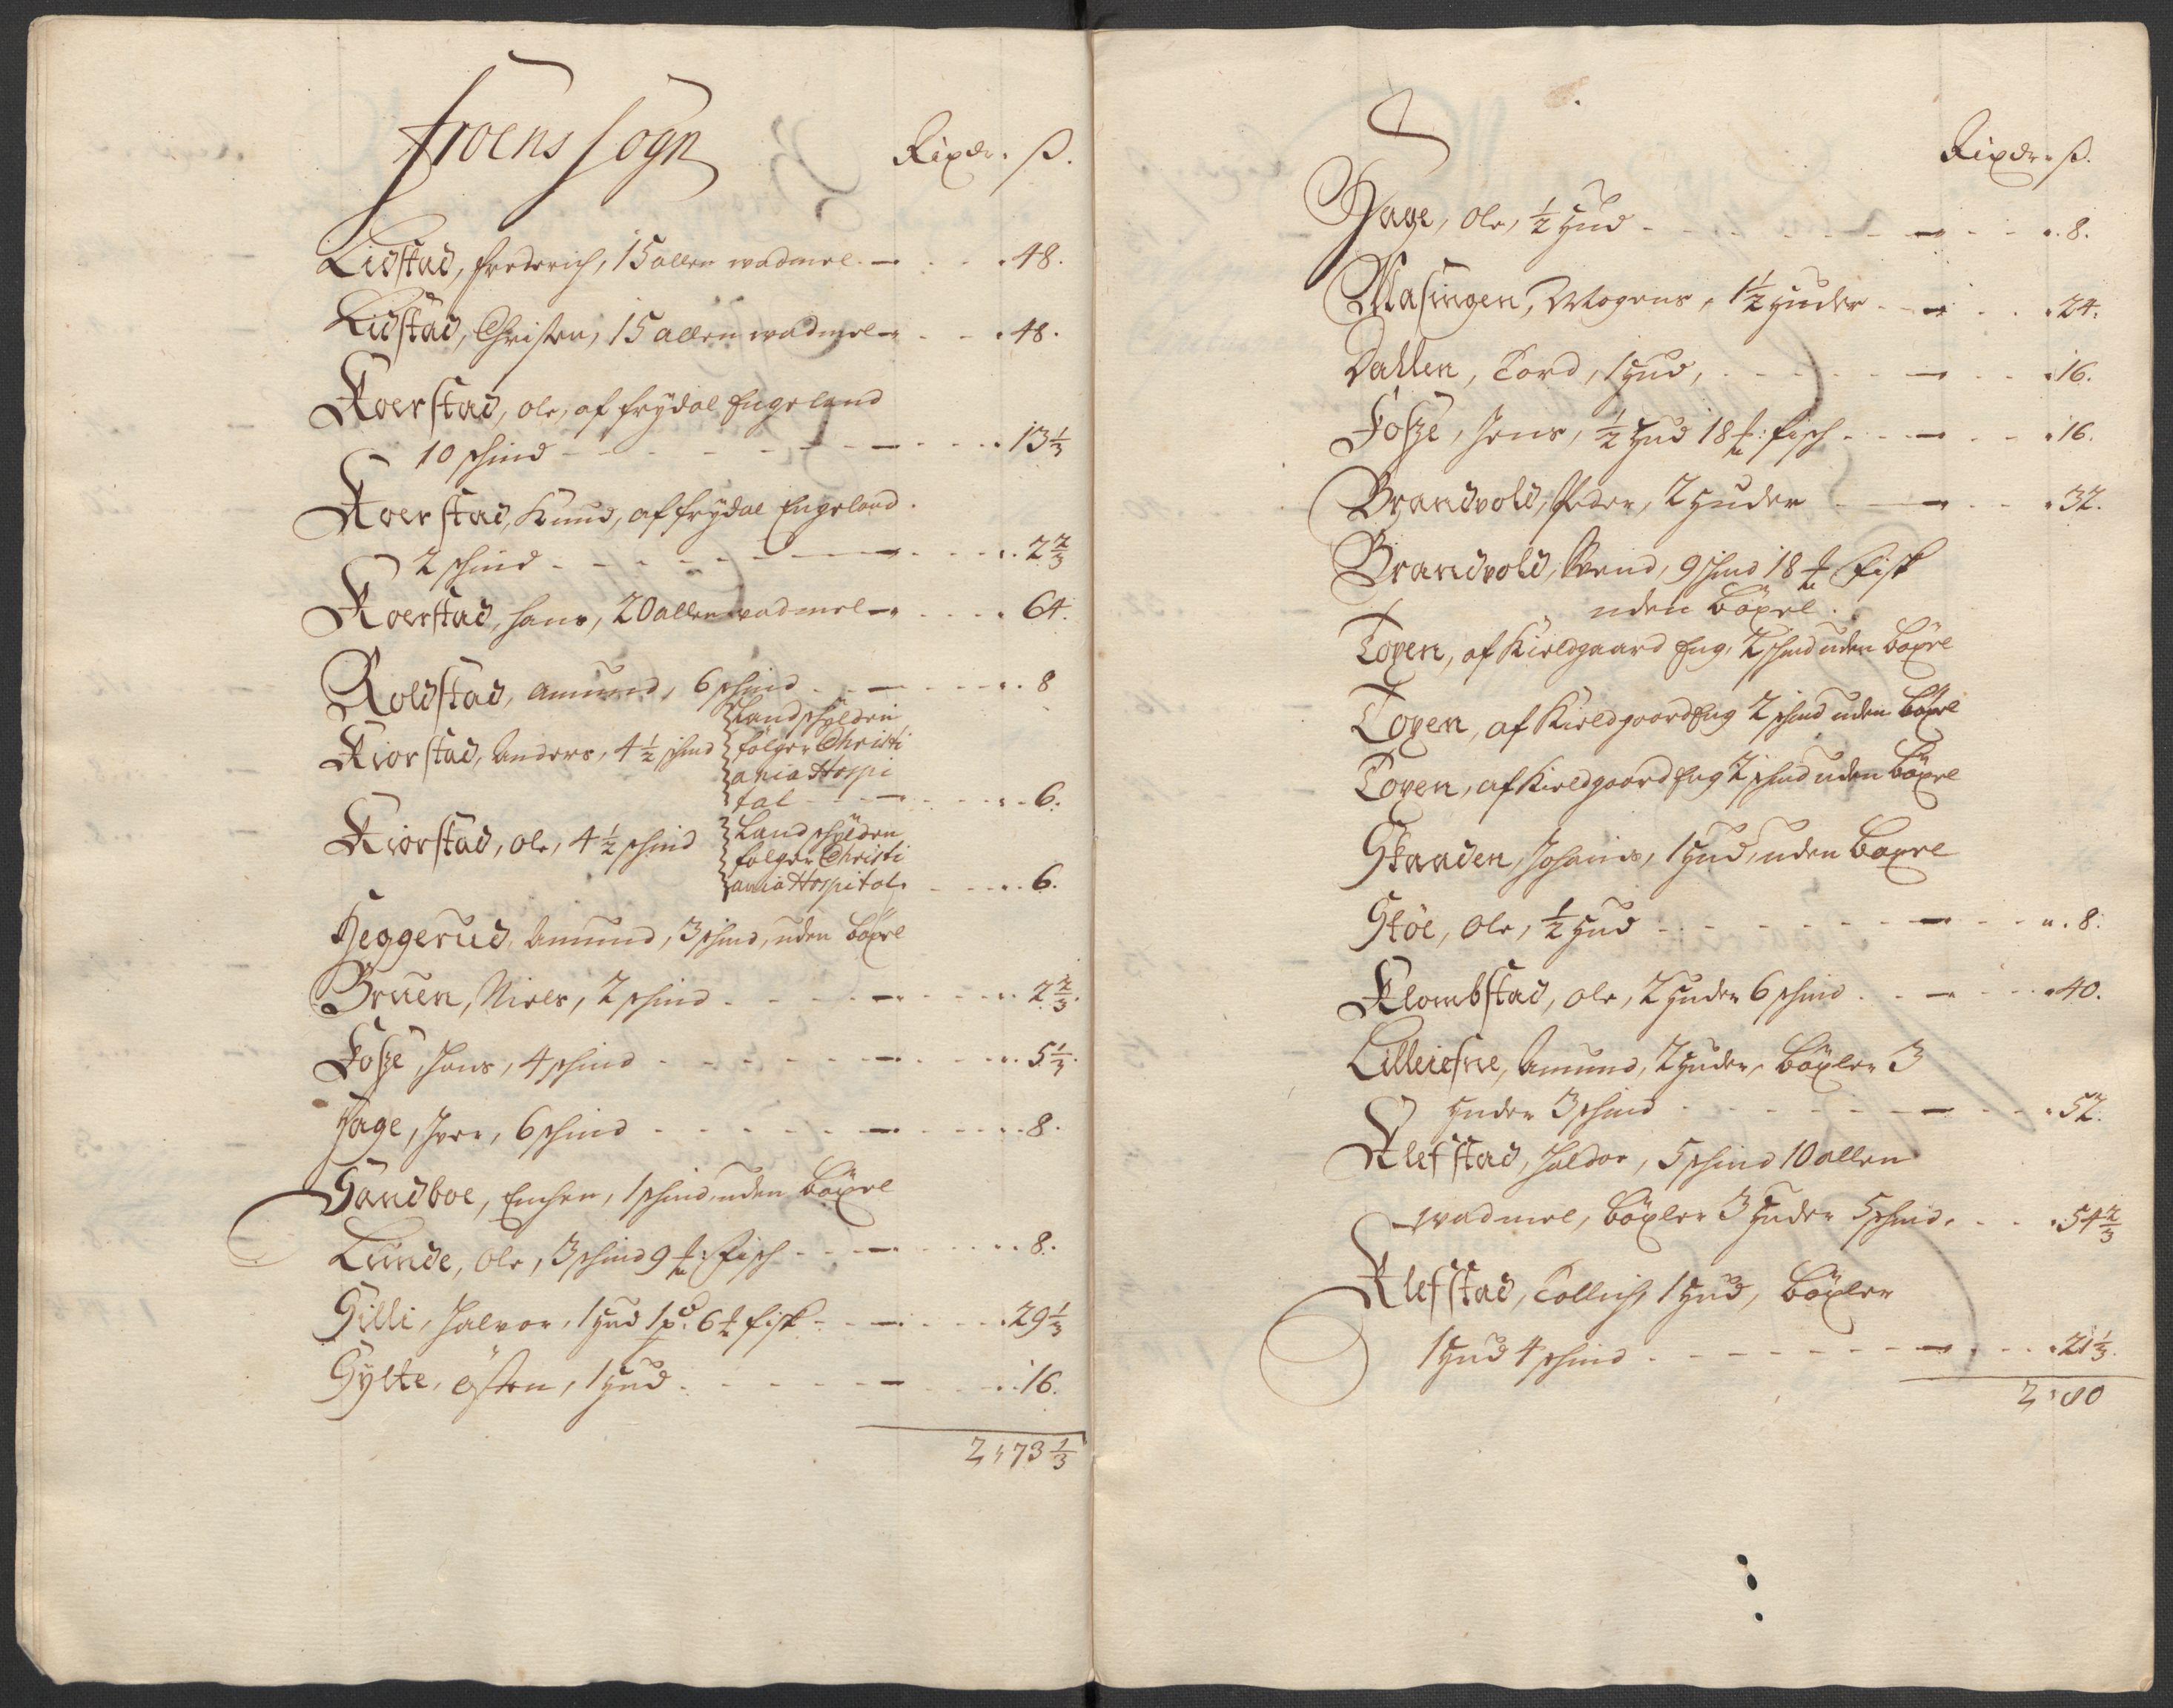 Froens Sogn Rixdr. ß.
Lidstad, Frederich, 15 allen wadmel — 48.
Lidstad, Christen, 15 allen wadmel — 48.
Koerstad, Ole, af Frydal Engeland
10 schind — 13 1/3
Koerstad, Knud, af Frydal Engeland.
2 schind — 2 2/3
Koerstad, Hans, 20 allen wadmel — 64.
Roldstad, Amund, 6 schind — 8
Kiorstad, Anders, 4 1/2 schind Landschylden
følger Christi
ania Hospi
tal — 6.
Kiorstad, Ole, 4 1/2 schind Landschylden
følger Christi
ania Hospital. 6.
Heggerud, Amund, 3 schind, uden böxel
Bruen, Niels, 2 schind — 2 2/3.
Fosze, Jens, 4 schind — 5 1/3.
Hage, Iver, 6 schind — 8.
Sandboe, Enchen, 1 schind, uden böxel
Lunde, Ole, 3 schind 9 ℔: Fisch — 8.
Gilli, Halvor, 1 Hud 1 pd. 6 ℔ fisk — 29 1/3
Sylte, Østen, 1 Hud — 16.
2, 73 1/3
Rixdr. ß.
Hage, Ole, 1/2 Hud — 8.
Masingen, Mogens, 1 1/2 Huder — 24.
Dahlen, Tord, 1 Hud, — 16.
Fosze, Jens, 1/2 Hud 18 ℔: fisch — 16.
Brandvold, Peder, 2 Huder — 32.
Brandvold, Svend, 9 schind 18 ℔ Fisk
uden böxel.
Toxen, af Kieldgaard Eng, 2 schind uden böxel
Toxen, af Kieldgaard Eng 2 schind uden böxel
Toxen, af Kieldgaard Eng 2 schind uden böxel
Skaaden, Johanis, 1 Hud, uden böxel
Støe, Ole, 1/2 Hud — 8.
Klombstad, Ole, 2 Huder 6 schind — 40.
Lilleiefne, Amund, 2 Huder, böxler 3
Huder 3 schind — 52.
Klefstad, Haldor, 5 schind 10 allen
wadmel, böxler 3 Huder 5 schind. 54 2/3
Klefstad, Tollich, 1 Hud, böxler
1 Hud 4 schind — 21 1/3.
2, 80